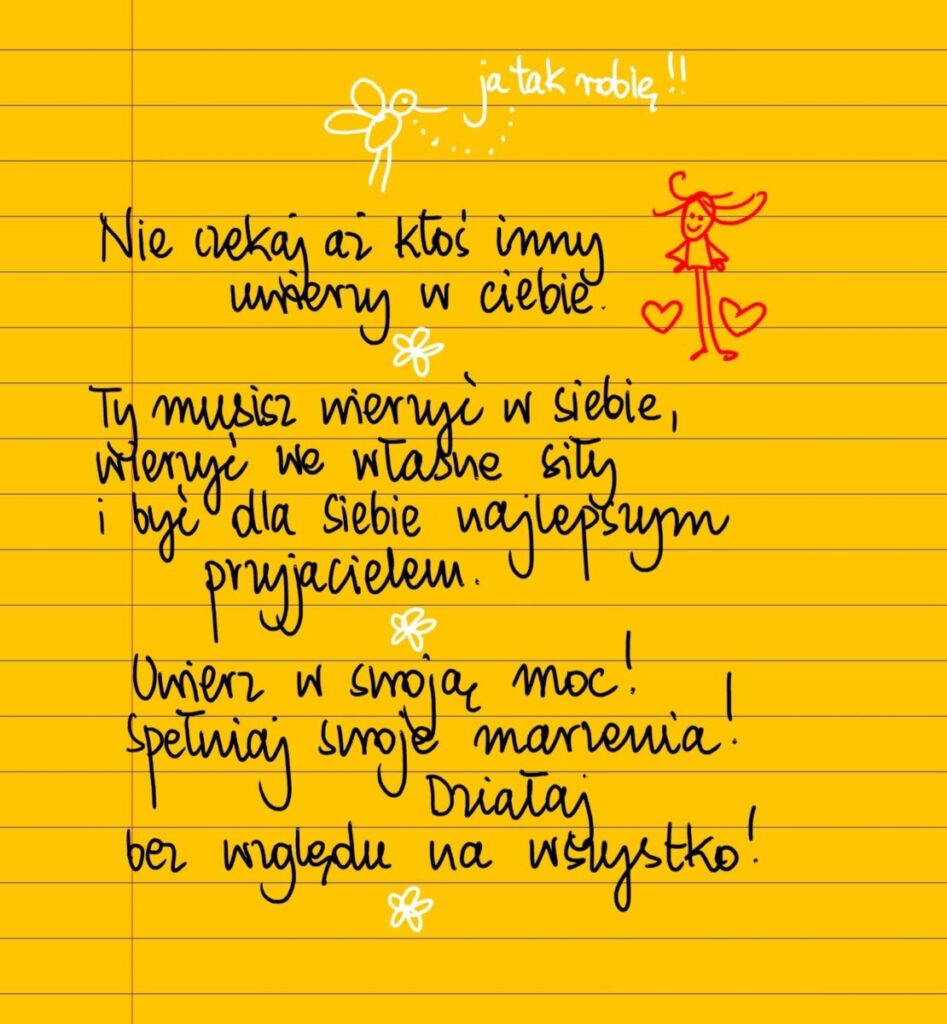 ja tak robię!!
Nie czekaj aż ktoś inny
uwierzy w ciebie.
Ty musisz wierzyć w siebie,
wierzyć we własne siły
i być dla siebie najlepszym
przyjacielem.
Uwierz w swoją moc!
Spełniaj swoje marzenia!
Działaj
bez względu na wszystko!